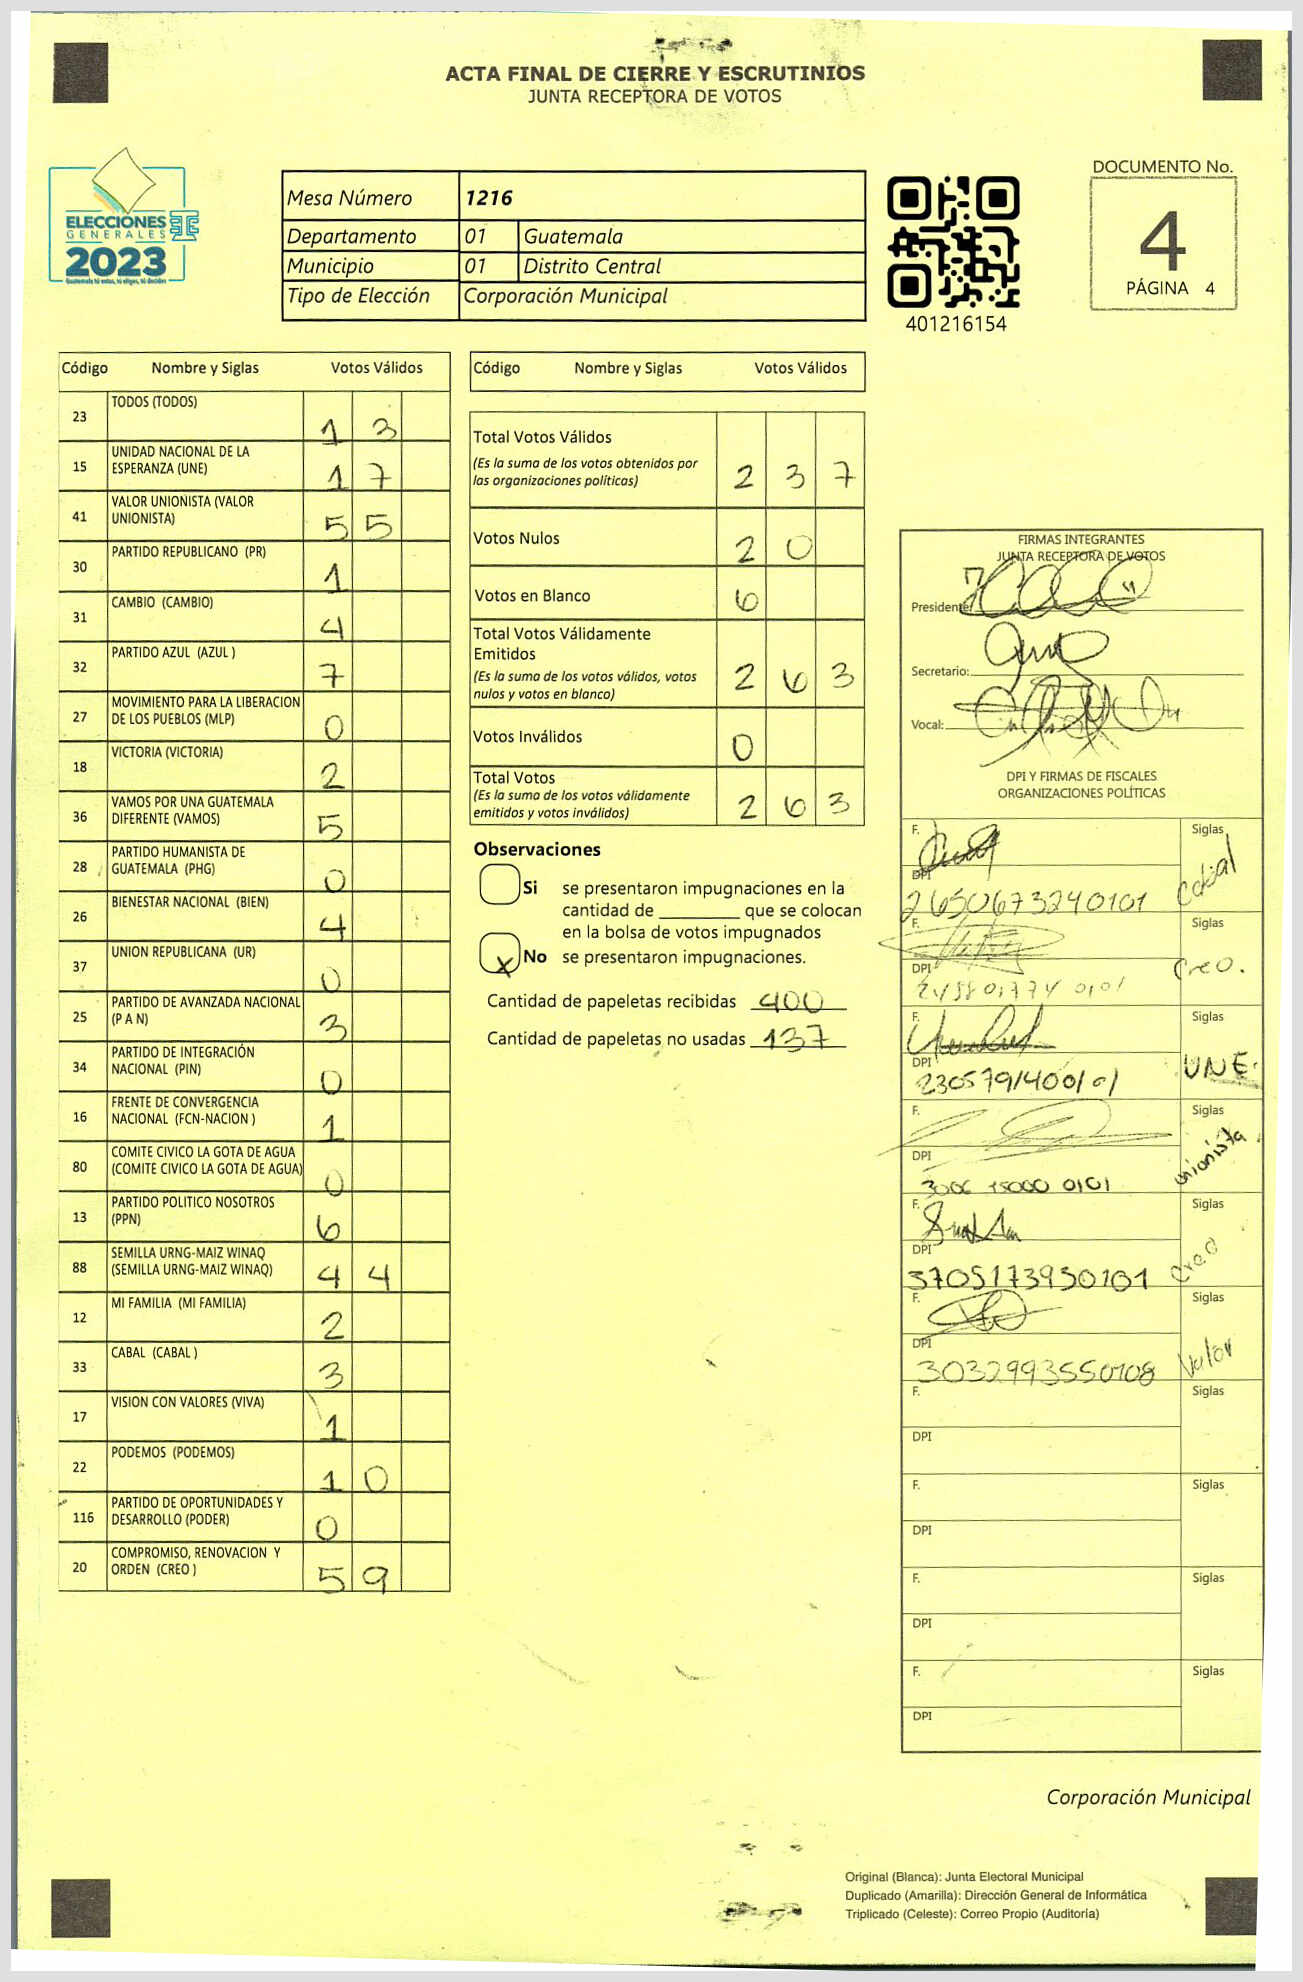 ACTA FINAL DE CIERRE Y ESCRUTINIOS
JUNTA RECEPTORA DE VOTOS
ELECCIONES
GENERALES
2023
Mesa Número 1216
Departamento 01 Guatemala
Municipio 01 Distrito Central
Tipo de Elección Corporación Municipal
401216154
DOCUMENTO No.
4
PÁGINA 4
Código Nombre y Siglas Votos Válidos
23 TODOS (TODOS) 1 3
15 UNIDAD NACIONAL DE LA
ESPERANZA (UNE) 1 7
41 VALOR UNIONISTA (VALOR
UNIONISTA) 5 5
30 PARTIDO REPUBLICANO (PR) 1
31 CAMBIO (CAMBIO) 4
32 PARTIDO AZUL (AZUL ) 7
27 MOVIMIENTO PARA LA LIBERACION
DE LOS PUEBLOS (MLP) 0
18 VICTORIA (VICTORIA) 2
36 VAMOS POR UNA GUATEMALA
DIFERENTE (VAMOS) 5
28 PARTIDO HUMANISTA DE
GUATEMALA (PHG) 0
26 BIENESTAR NACIONAL (BIEN) 4
37 UNION REPUBLICANA (UR) 0
25 PARTIDO DE AVANZADA NACIONAL
(P A N) 3
34 PARTIDO DE INTEGRACIÓN
NACIONAL (PIN) 0
16 FRENTE DE CONVERGENCIA
NACIONAL (FCN-NACION ) 1
80 COMITE CIVICO LA GOTA DE AGUA
(COMITE CIVICO LA GOTA DE AGUA) 0
13 PARTIDO POLITICO NOSOTROS
(PPN) 6
88 SEMILLA URNG-MAIZ WINAQ
(SEMILLA URNG-MAIZ WINAQ) 4 4
12 MI FAMILIA (MI FAMILIA) 2
33 CABAL (CABAL ) 3
17 VISION CON VALORES (VIVA) 1
22 PODEMOS (PODEMOS) 1 0
116 PARTIDO DE OPORTUNIDADES Y
DESARROLLO (PODER) 0
20 COMPROMISO, RENOVACION Y
ORDEN (CREO ) 5 9
Código Nombre y Siglas Votos Válidos
Total Votos Válidos
(Es la suma de los votos obtenidos por
las organizaciones políticas) 2 3 7
Votos Nulos 2 0
Votos en Blanco 6
Total Votos Válidamente
Emitidos
(Es la suma de los votos válidos, votos
nulos y votos en blanco) 2 6 3
Votos Inválidos 0
Total Votos
(Es la suma de los votos válidamente
emitidos y votos inválidos) 2 6 3
Observaciones
Si se presentaron impugnaciones en la
cantidad de ________ que se colocan
en la bolsa de votos impugnados
x No se presentaron impugnaciones.
Cantidad de papeletas recibidas 400
Cantidad de papeletas no usadas 137
FIRMAS INTEGRANTES
JUNTA RECEPTORA DE VOTOS
Presidente:
Secretario:
Vocal:
DPI Y FIRMAS DE FISCALES
ORGANIZACIONES POLÍTICAS
F. Siglas
DPI
2650673240101
F. Siglas
DPI Creo.
F. Siglas
DPI UNE.
2305791400101
F. Siglas
DPI unionista
0101
F. Siglas
DPI Creo
3705173930101
F. Siglas
DPI Valor
3032993550108
F. Siglas
DPI
F. Siglas
DPI
F. Siglas
DPI
F. Siglas
DPI
Corporación Municipal
Original (Blanca): Junta Electoral Municipal
Duplicado (Amarilla): Dirección General de Informática
Triplicado (Celeste): Correo Propio (Auditoría)